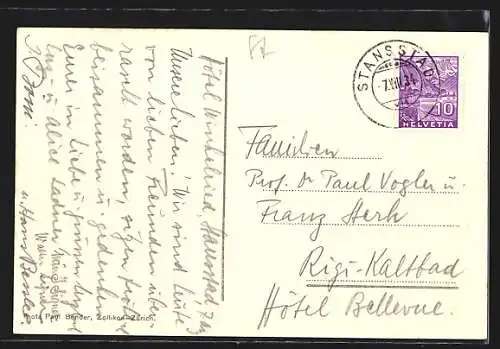 Hôtel Winkelried, Stansstad 7 Aug
Unsere lieben! Wir sind heute
von lieben Freunden über-
rascht worden, sitzen fröhlich
beisammen u. gedenken
Euer in Liebe u. grüssen
u. Alice
u. Hans
Photo Paul Bender, Zollikon-Zürich.
STANSSTAD
-7.VIII.34
10
HELVETIA
Familien
Prof. Dr Paul Vogler u.
Franz Herk
Rigi-Kaltbad
Hôtel Bellevue.